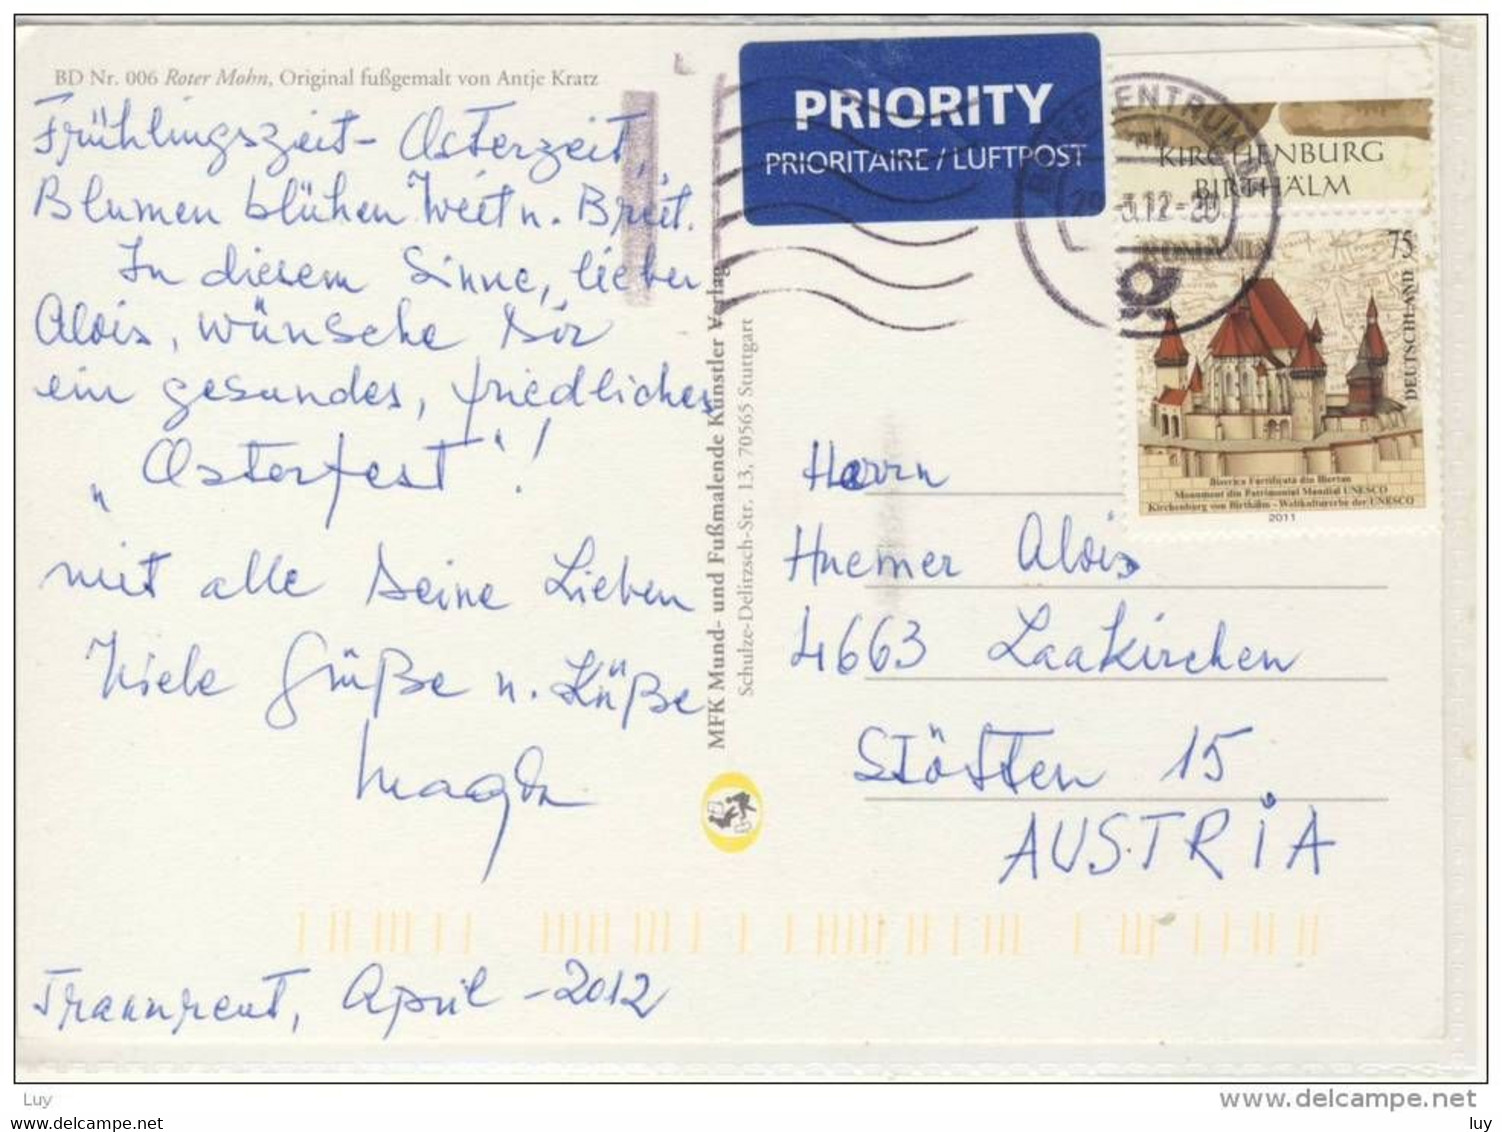 BD Nr. 006 Roter Mohn, Original fußgemalt von Antje Kratz
Frühlingszeit - Osterzeit,
Blumen blühen Weit u. Breit.
In diesem Sinne, lieber
Alois, wünsche Dir
ein gesundes, friedliches
„Osterfest“!
mit alle Deine Lieben
Viele Grüße u. Küße
Magda
Traunreut, April - 2012
MFK Mund- und Fußmalende Künstler Verlag
Schulze-Delitzsch-Str. 13, 70565 Stuttgart
PRIORITY
PRIORITAIRE / LUFTPOST
BRIEFZENTRUM
29.-3.12-20
KIRCHENBURG
BIRTHÄLM
ROMÂNIA
75
DEUTSCHLAND
Biserica Fortificată din Biertan
Monument din Patrimoniul Mondial UNESCO
Kirchenburg von Birthälm - Weltkulturerbe der UNESCO
2011
Herrn
Huemer Alois
4663 Laakirchen
Stötten 15
AUSTRIA
Luy
delcampe.net
delcampe.net
luy